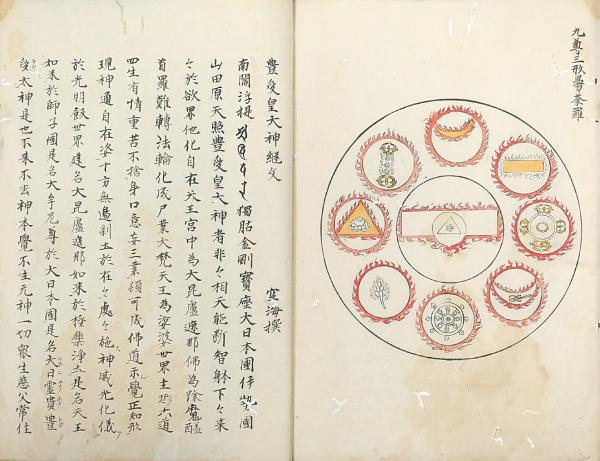 九尊三形曼荼羅
豊受皇太神継文
空海撰
南閻浮提 独肹金剛寳座大日本國伊勢國
山田原天照豊受皇太神者非々相天能断智躰下々来
々於欲界他化自在天王宮中為大毘盧遮那佛為除魔醯
首羅難轉法輪化成尸棄大梵天王為娑婆世界主悲六道
四生有情重苦不捨身口意妄三業頓可成佛道示覺正知形
現神通自在姿十方無邊刹土於在々處々施神威光化儀
於光明飯世界是名大毘盧遮那如来於極樂浄土是名天王
如来於師子國是名大牟尼尊於大日本國是名大日孁貴豊
受太神是也不来不去神本覺不生元神一切衆生慈父常住